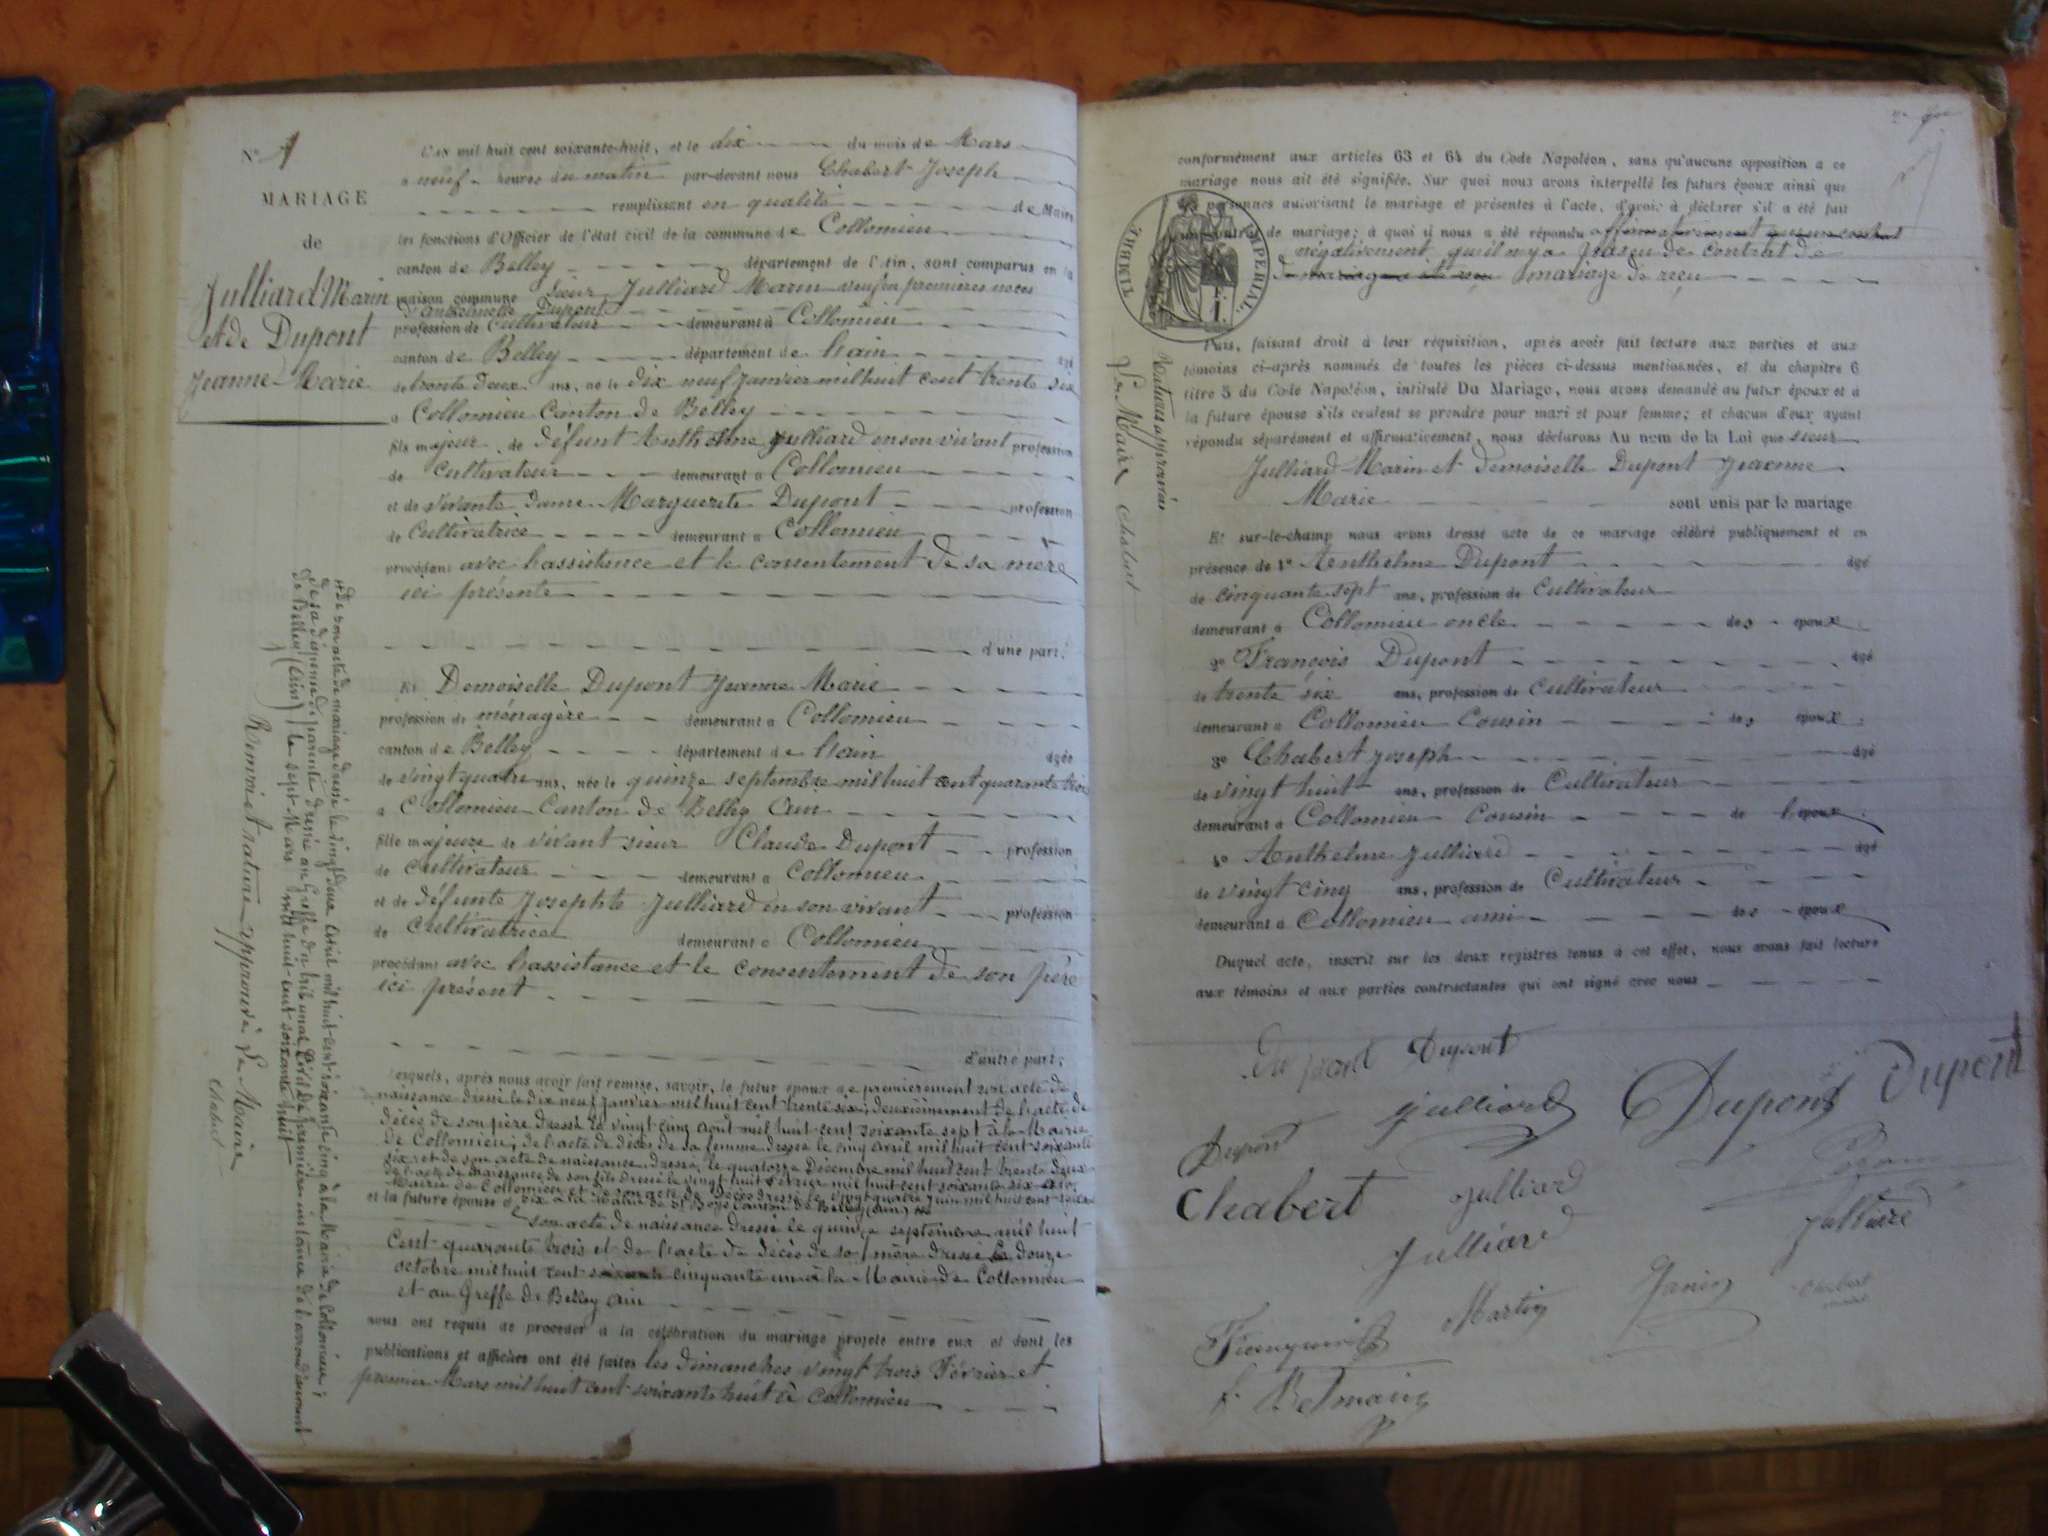 N° 1
MARIAGE
de
Julliard Marin
et de Dupont
Jeanne Marie
L'an mil huit cent soixante-huit, et le dix du mois de Mars
a neuf heures du matin par-devant nous Chabert Joseph
remplissant en qualité de Maire
les fonctions d'Officier de l'état civil de la commune de Collomieu
canton de Belley département de l'Ain, sont comparus en la
maison commune sieur Julliard Marin veuf en premières noces
d'Anthelmette Dupont
profession de Cultivateur demeurant à Collomieu
canton de Belley département de l'ain âgé
de trente deux ans, né le dix neuf Janvier mil huit cent trente six
a Collomieu Canton de Belley
fils majeur de défunt Anthelme Julliard en son vivant profession
de Cultivateur demeurant a Collomieu
et de vivante dame Marguerite Dupont profession
de Cultivatrice demeurant a Collomieu
procédant avec l'assistence et le consentement de sa mère
ici présente
d'une part;
Et Demoiselle Dupont Jeanne Marie
profession de ménagère demeurant a Collomieu
canton de Belley département de l'ain âgée
de vingt quatre ans, née le quinze septembre mil huit cent quarante trois
a Collomieu Canton de Belley Ain
fille majeure de vivant sieur Claude Dupont profession
de Cultivateur demeurant a Collomieu
et de défunte Josephte Julliard en son vivant profession
de Cultivatrice demeurant a Collomieu
procédant avec l'assistance et le consentement de son père
ici présent
d'autre part;
Lesquels, après nous avoir fait remise, savoir, le futur époux de premièrement son acte de
naissance dressé le dix neuf Janvier mil huit cent trente six; deuxièmement de l'acte de
décès de son père dressé le vingt cinq Août mil huit cent soixante sept à la Mairie
de Collomieu; de l'acte de décès de sa femme dressé le cinq Avril mil huit cent soixante
six; et de son acte de naissance dressé le quatorze Décembre mil huit cent trente deux
de l'acte de naissance de son fils dressé le vingt huit Février mil huit cent soixante six à la
Mairie de Collomieu et de son acte de décès dressé le vingt quatre Juin mil huit cent soixante
et la future épouse six à la Mairie de St Bois Canton de Belley (Ain)
son acte de naissance dressé le quinze septembre mil huit
Cent quarante trois et de l'acte de décès de sa mère dressé le douze
octobre mil huit cent soixante cinquante un à la Mairie de Collomieu
et au Greffe de Belley Ain
nous ont requis de procéder à la célébration du mariage projeté entre eux et dont les
publications et affiches ont été faites les dimanches vingt trois Février et
premier Mars mil huit cent soixante huit à Collomieu
de son acte de mariage dressé le vingt deux Avril mil huit cent soixante cinq à la Mairie de Collomieu;
de sa dispense de parenté dressée au Greffe du tribunal Civil de première instance de l'arrondissement
de Belley (Ain) le sept Mars mil huit cent soixante huit
Renvoi et rature approuvés Le Maire
Chabert
conformément aux articles 63 et 64 du Code Napoléon, sans qu'aucune opposition a ce
mariage nous ait été signifiée. Sur quoi nous avons interpellé les futurs époux ainsi que
les personnes autorisant le mariage et présentes à l'acte, d'avoir à déclarer s'il a été fait
un contrat de mariage; à quoi il nous a été répondu affirmativement qu'un contrat
négativement qu'il n'y a pas eu de contrat de
de mariage a été reçu mariage de reçu
TIMBRE IMPERIAL
Ratures approuvées
Le Maire Chabert
Puis, faisant droit à leur réquisition, après avoir fait lecture aux parties et aux
témoins ci-après nommés de toutes les pièces ci-dessus mentionnées, et du chapitre 6
titre 5 du Code Napoléon, intitulé Du Mariage, nous avons demandé au futur époux et à
la future épouse s'ils veulent se prendre pour mari et pour femme; et chacun d'eux ayant
répondu séparément et affirmativement, nous déclarons Au nom de la Loi que sieur
Julliard Marin et demoiselle Dupont Jeanne
Marie sont unis par le mariage
Et sur-le-champ nous avons dressé acte de ce mariage célébré publiquement et en
présence de 1° Anthelme Dupont âgé
de cinquante sept ans, profession de Cultivateur
demeurant à Collomieu oncle des époux
2° François Dupont âgé
de trente six ans, profession de Cultivateur
demeurant à Collomieu Cousin des époux
3° Chabert Joseph âgé
de vingt huit ans, profession de Cultivateur
demeurant à Collomieu Cousin de l'époux
4° Anthelme Julliard âgé
de vingt cinq ans, profession de Cultivateur
demeurant à Collomieu ami des époux
Duquel acte, inscrit sur les deux registres tenus à cet effet, nous avons fait lecture
aux témoins et aux parties contractantes qui ont signé avec nous
Dupont Dupont
Julliard Dupont Dupont
Dupont
Chabert Julliard
Julliard Julliard
Martin Janin Chabert